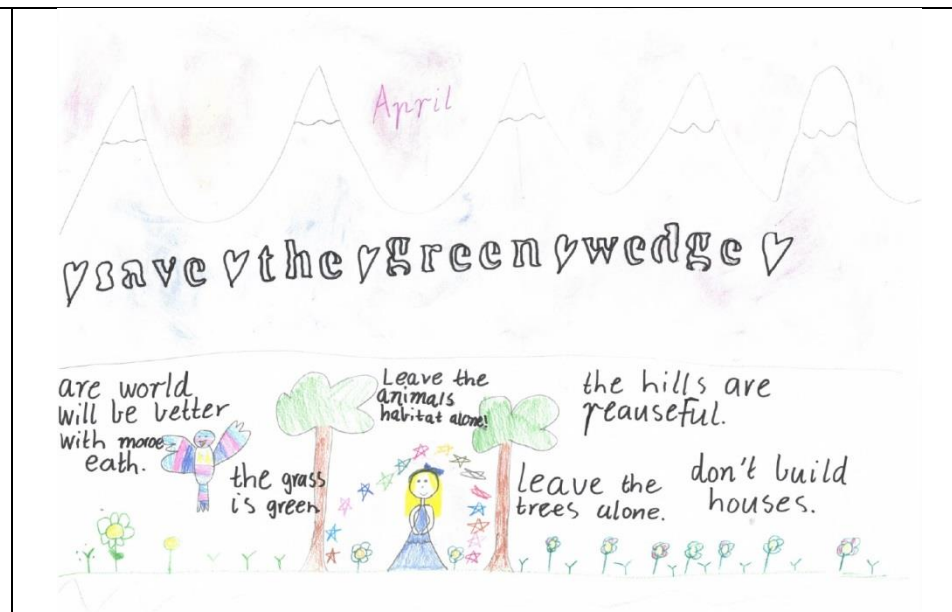 April
save the green wedge
are world
will be vetter
with moroe
eath.
the grass
is green
Leave the
animals
habitat alone!
the hills are
peauseful.
leave the
trees alone.
don't build
houses.